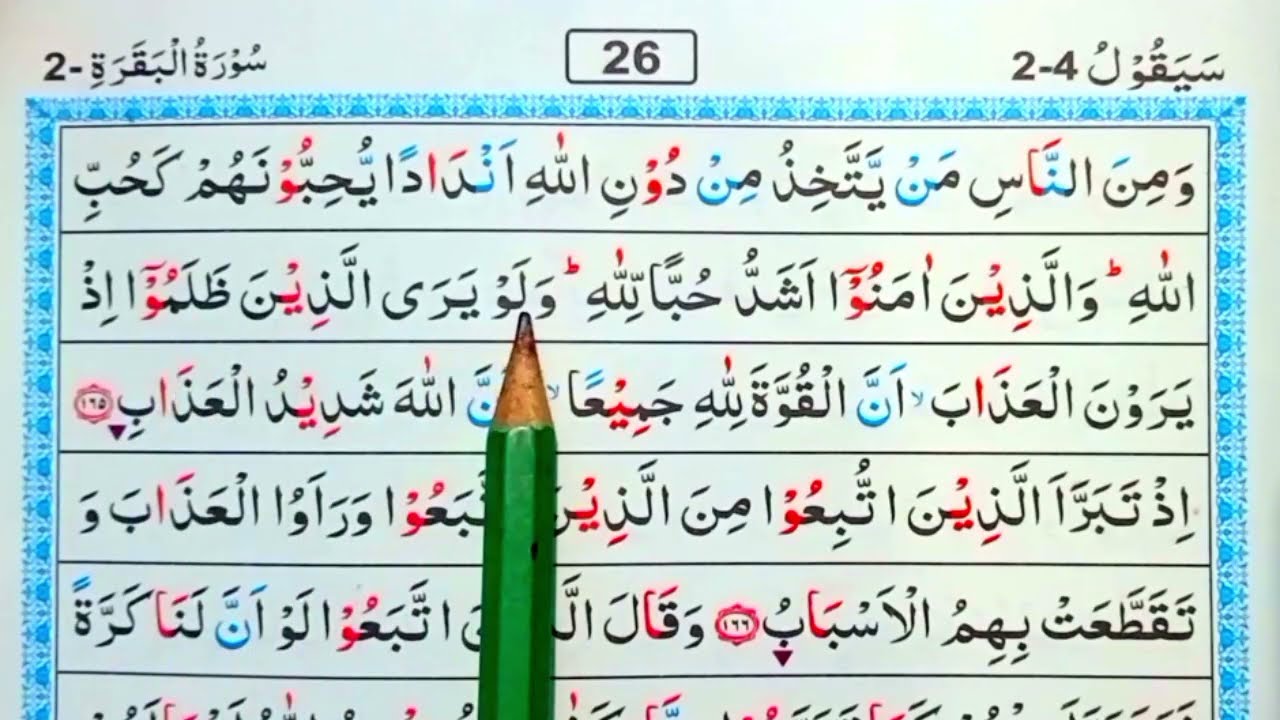 سَيَقُوْلُ 2-4 26 سُوْرَةُ الْبَقَرَةِ -2
وَمِنَ النَّاسِ مَنْ يَّتَّخِذُ مِنْ دُوْنِ اللّٰهِ اَنْدَادًا يُّحِبُّوْنَهُمْ كَحُبِّ
اللّٰهِ ؕ وَالَّذِيْنَ اٰمَنُوْۤا اَشَدُّ حُبًّا لِّلّٰهِ ؕ وَلَوْ يَرَى الَّذِيْنَ ظَلَمُوْۤا اِذْ
يَرَوْنَ الْعَذَابَ ۙ اَنَّ الْقُوَّةَ لِلّٰهِ جَمِيْعًا ۙ اللّٰهَ شَدِيْدُ الْعَذَابِ ۝١٦٥
اِذْ تَبَرَّاَ الَّذِيْنَ اتُّبِعُوْا مِنَ وَرَاَوُا الْعَذَابَ وَ
تَقَطَّعَتْ بِهِمُ الْاَسْبَابُ ۝١٦٦ وَقَالَ اتَّبَعُوْا لَوْ اَنَّ لَنَا كَرَّةً